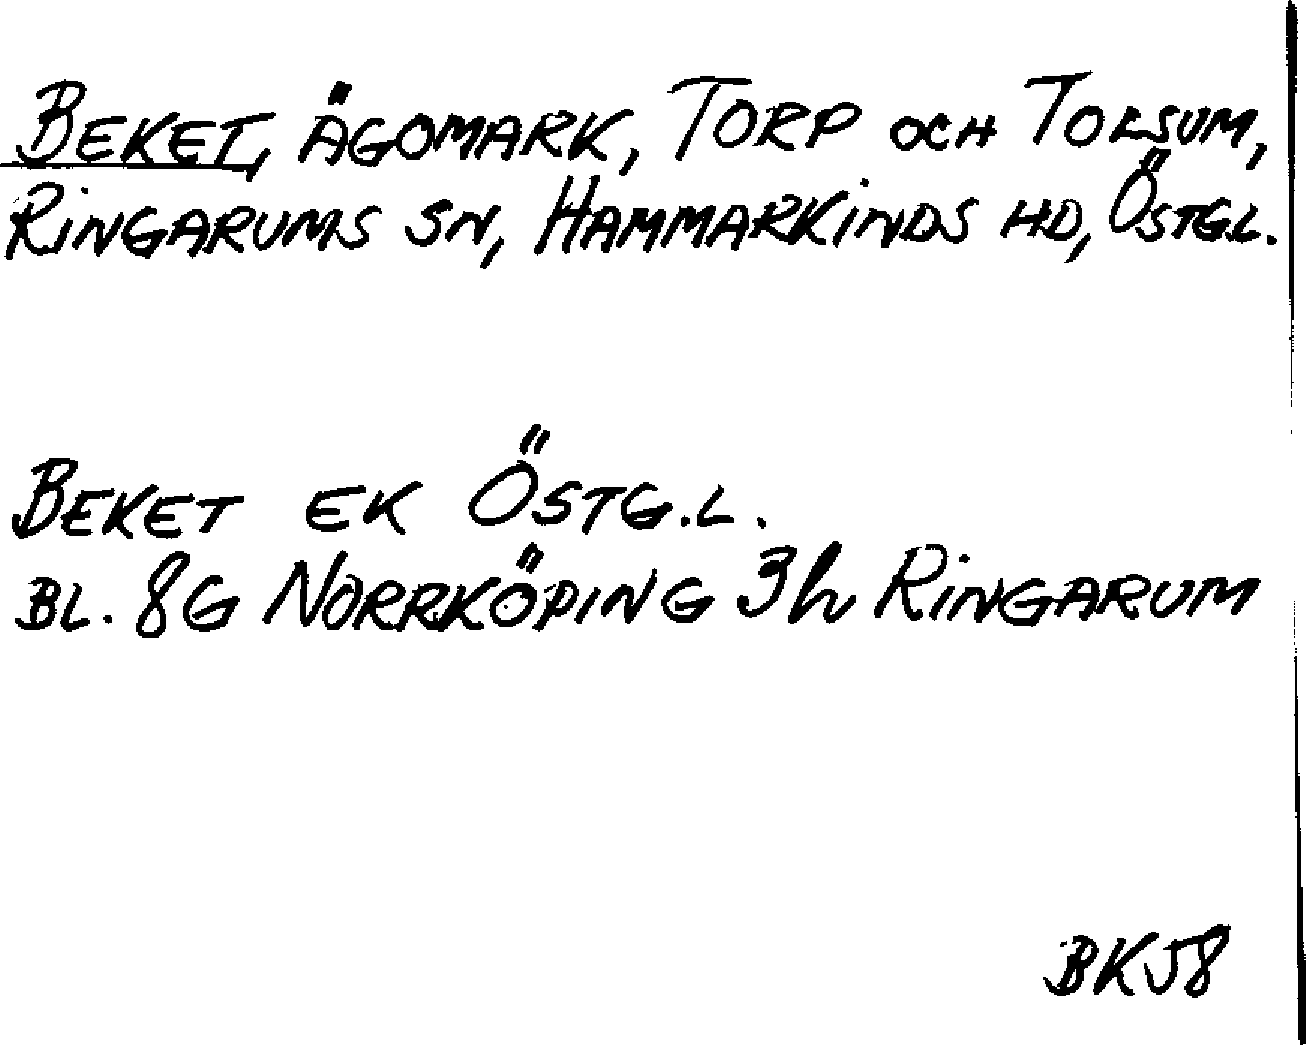 BEKET, ÄGOMARK, TORP OCH TOLSUM,
RINGARUMS SN, HAMMARKINDS HD, ÖSTG.L.
BEKET EK ÖSTG.L.
BL. 8G NORRKÖPING 3h RINGARUM
BK58